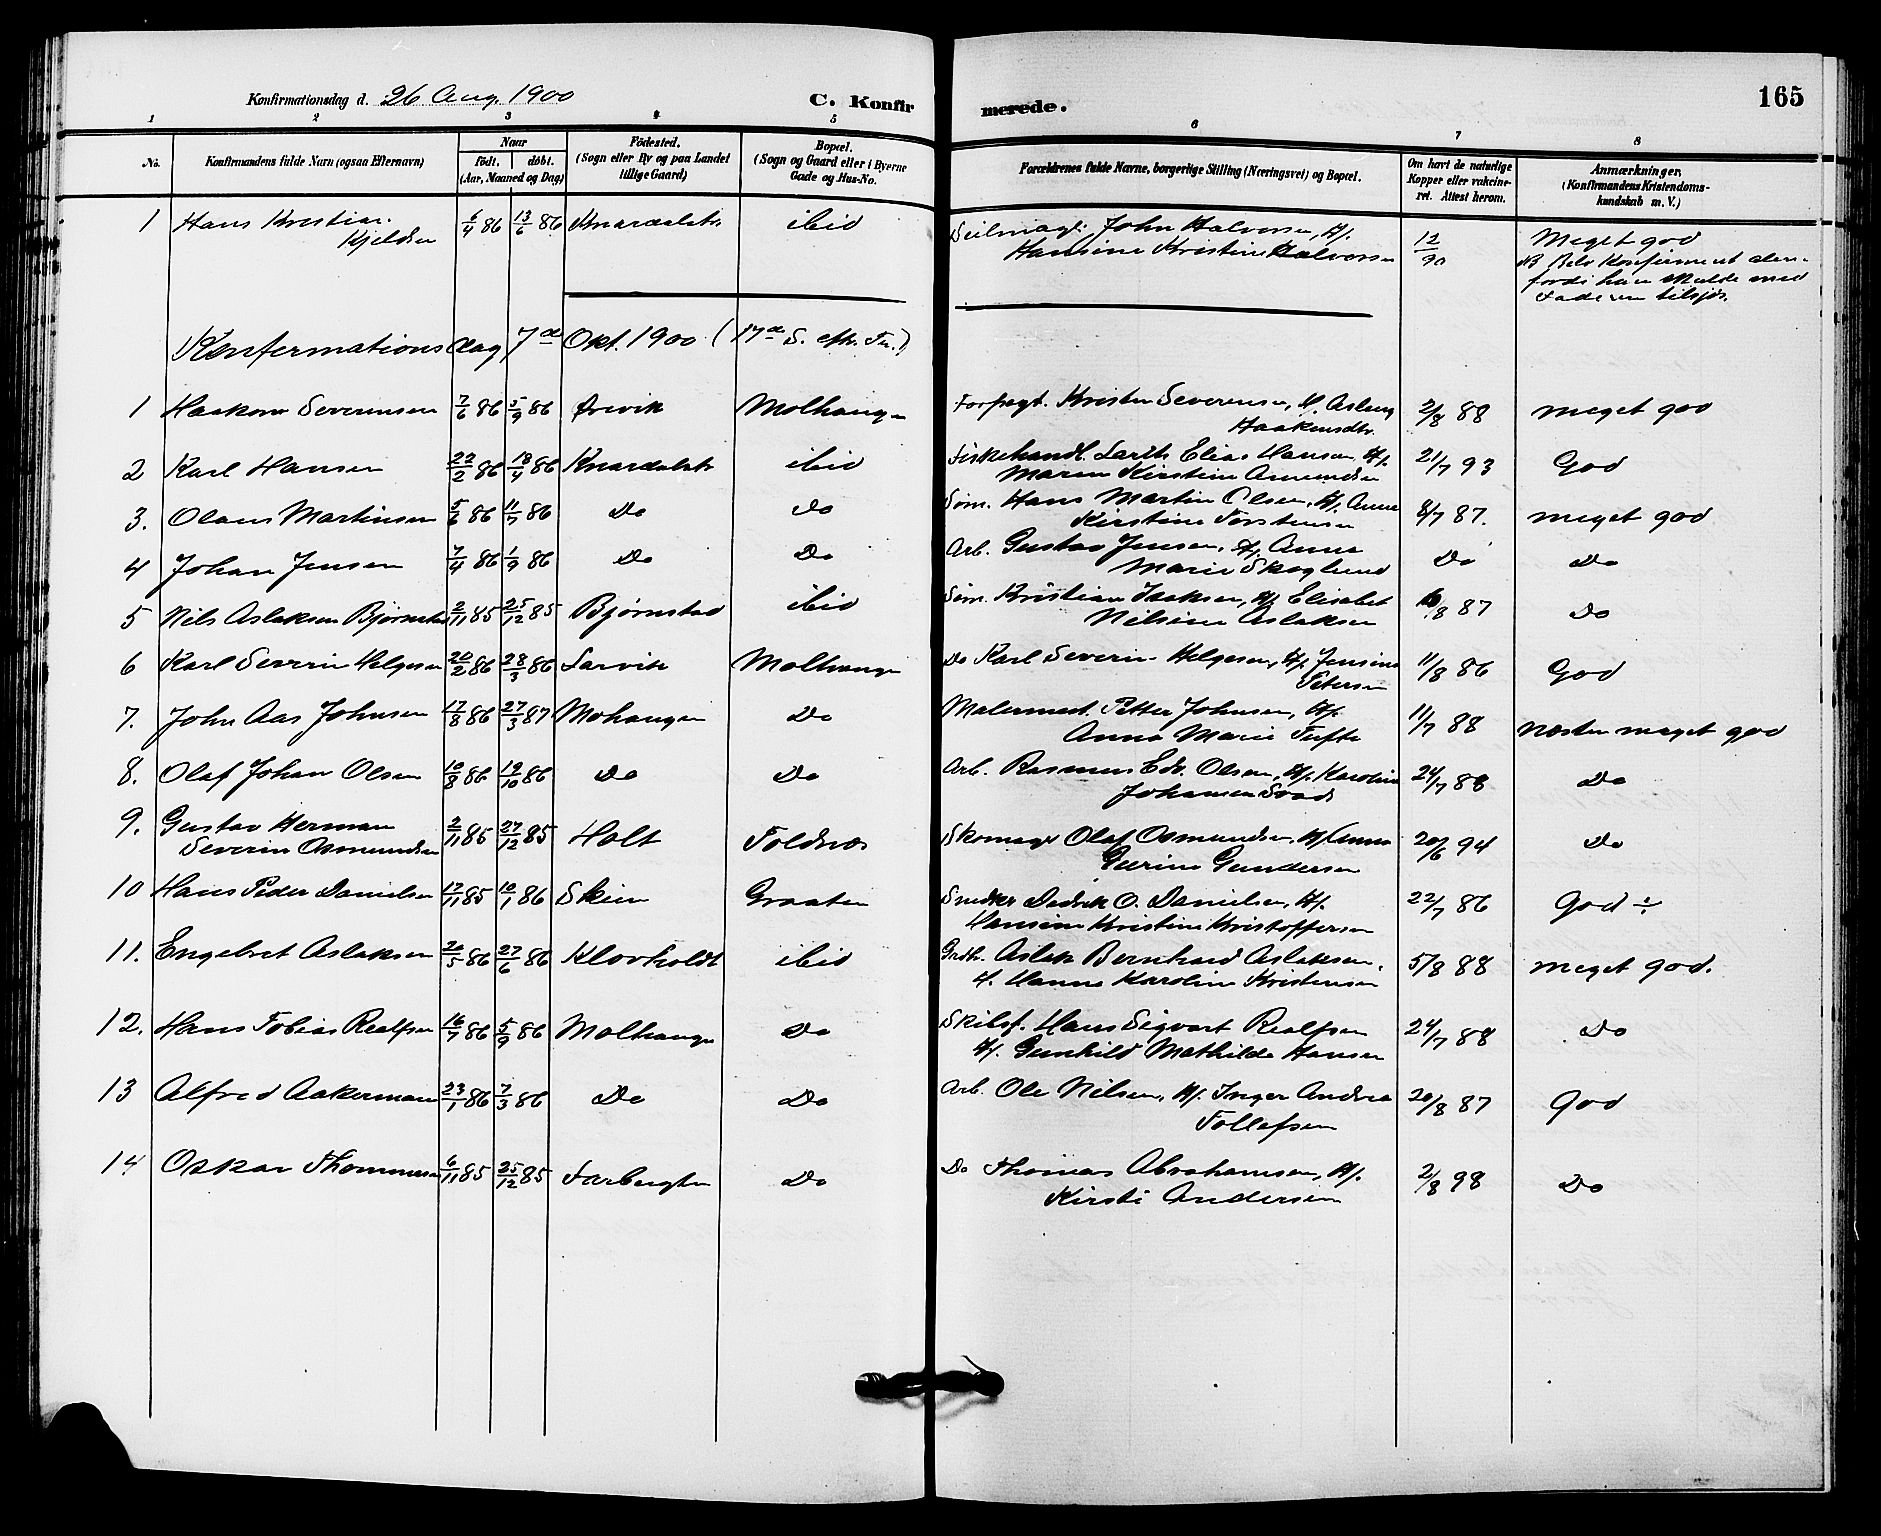 Konfirmationsdag d. 26 Aug. 1900
C. Konfir
merede.
165
1 2 3 4 5 6 7 8
No.
Konfirmandens fulde Navn (ogsaa Efternavn)
Naar
födt. döbt.
(Aar, Maaned og Dag)
Födested.
(Sogn eller By og paa Landet
tillige Gaard)
Bopæl.
(Sogn og Gaard eller i Byerne
Gade og Hus-No.
Forældrenes fulde Navne, borgerlige Stilling (Næringsvei) og Bopæl.
Om havt de naturlige
Kopper eller vakcine-
ret. Attest herom.
Anmærkninger.
(Konfirmandens Kristendoms-
kundskab m. V.)
1 Hans Kristian 6/4 86 13/6 86 Knardalstr ibid Seilmag. John Halvorsen, H/. 12/90 Meget god
Kjeldsen Hansine Kristine Halvorsen NB Blev Konfirmeret alene
fordi han skulde med
Faderen tilsjös.
Konfermationsdag 7de Okt. 1900 (17de S. efter Tr.)
1 Haakon Severinsen 7/6 86 5/9 86 Ørvik Molhaugen Forpagt. Kristen Severinsen, H. Aslaug 2/8 88 meget god
Haakensdtr.
2 Karl Hansen 22/2 86 18/4 86 Knardalstr ibid Fiskehandl. Elias Hansen H/. 21/7 93 God
Maren Kirstine Amundsen
3. Olaus Martinsen 5/6 86 11/7 86 Do Do Söm. Hans Martin Olsen, H/. Anne 8/7 87. meget god
Kirstine Torstensen
4 Johan Jensen 7/4 86 1/9 86 Do Do Arb. Gustav Jensen, H/. Anne Do Do
Marie Skoglund
5 Nils Aslaksen Bjørnstad 2/11 85 25/12 85 Bjørnstad ibid Söm. Kristian Isaksen, H/. Elisabet 16/8 87 Do
Nilsine Aslaksen
6 Karl Severin Helgesen 20/2 86 28/3 86 Larvik Molhaugen Do Karl Severin Helgesen, H/. Jensine 11/8 86 God
Petersen
7. John Aas Johnsen 17/8 86 27/3 87 Mohaugen Do Malermest. Petter Johnsen, H/. 11/7 88 næsten meget god
Anna Marie Tufte
8. Olaf Johan Olsen 10/8 86 19/10 86 Do Do Arb. Rasmus Edv. Olsen, H/. Karoline 24/7 88 Do
Johansen
9. Gustav Herman 2/11 85 27/12 85 Holt Foldnes Skomager Olaf Osmundsen, H/. Anna 20/6 94 Do
Severin Osmundsen Gurine Gundersen
10 Hans Peder Danielsen 17/11 85 10/1 86 Skien Graaten Snedker Dedrik O. Danielsen, H/. 22/7 86 God ÷
Hansine Kristine Kristoffersen
11. Engebret Aslaksen 20/5 86 27/6 86 Klovholdt ibid Grdb. Aslak Bernhard Aslaksen, 5/8 88 meget god.
H. Hanna Karoline Kristensen
12. Hans Tobias Realfsen 16/7 86 5/9 86 Molhaugen Do Skibsf. Hans Sigvart Realfsen 24/7 88 Do
H/. Gunhild Mathilde Hansen
13 Alfred Aakermann 23/1 86 7/3 86 Do Do Arb. Ole Nilsen, H/. Inger Andrea 20/8 87 God
Tollefsen
14 Oskar Thommesen 6/11 85 25/12 85 Do Do Thomas Abrahamsen, H/. 2/8 98 Do
Kirsti Andersen